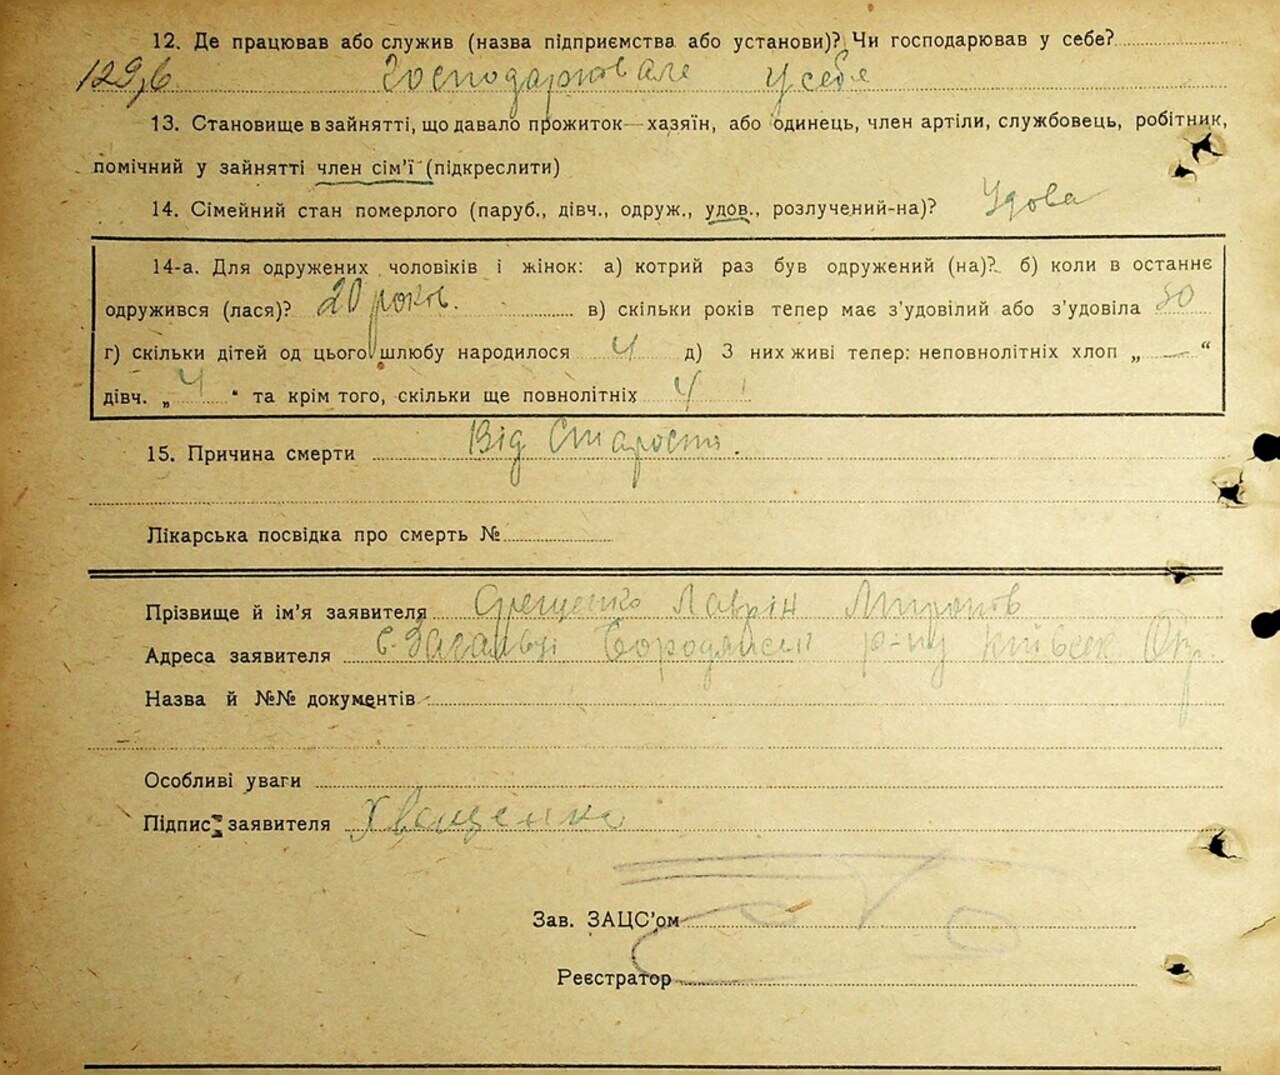 12. Де працював або служив (назва підприємства або установи)? Чи господарював у себе?
129,6. Господарювала у себе
13. Становище в зайнятті, що давало прожиток—хазяїн, або одинець, член артіли, службовець, робітник,
помічний у зайнятті член сім'ї (підкреслити)
14. Сімейний стан померлого (паруб., дівч., одруж., удов., розлучений-на)? Удова
14-а. Для одружених чоловіків і жінок: а) котрий раз був одружений (на)? б) коли в останнє
одружився (лася)? 20 років. в) скільки років тепер має з'удовілий або з'удовіла 50
г) скільки дітей од цього шлюбу народилося 4 д) З них живі тепер: неповнолітніх хлоп „ — “
дівч. „ 4 " та крім того, скільки ще повнолітніх 4
15. Причина смерти Від Старости.
Лікарська посвідка про смерть №
Прізвище й ім'я заявителя Лаврін Миронов
Адреса заявителя с. Загальці Бородянськ р-ну Київськ Окр.
Назва й №№ документів
Особливі уваги
Підпис заявителя Хващенко
Зав. ЗАЦС'ом
Реєстратор